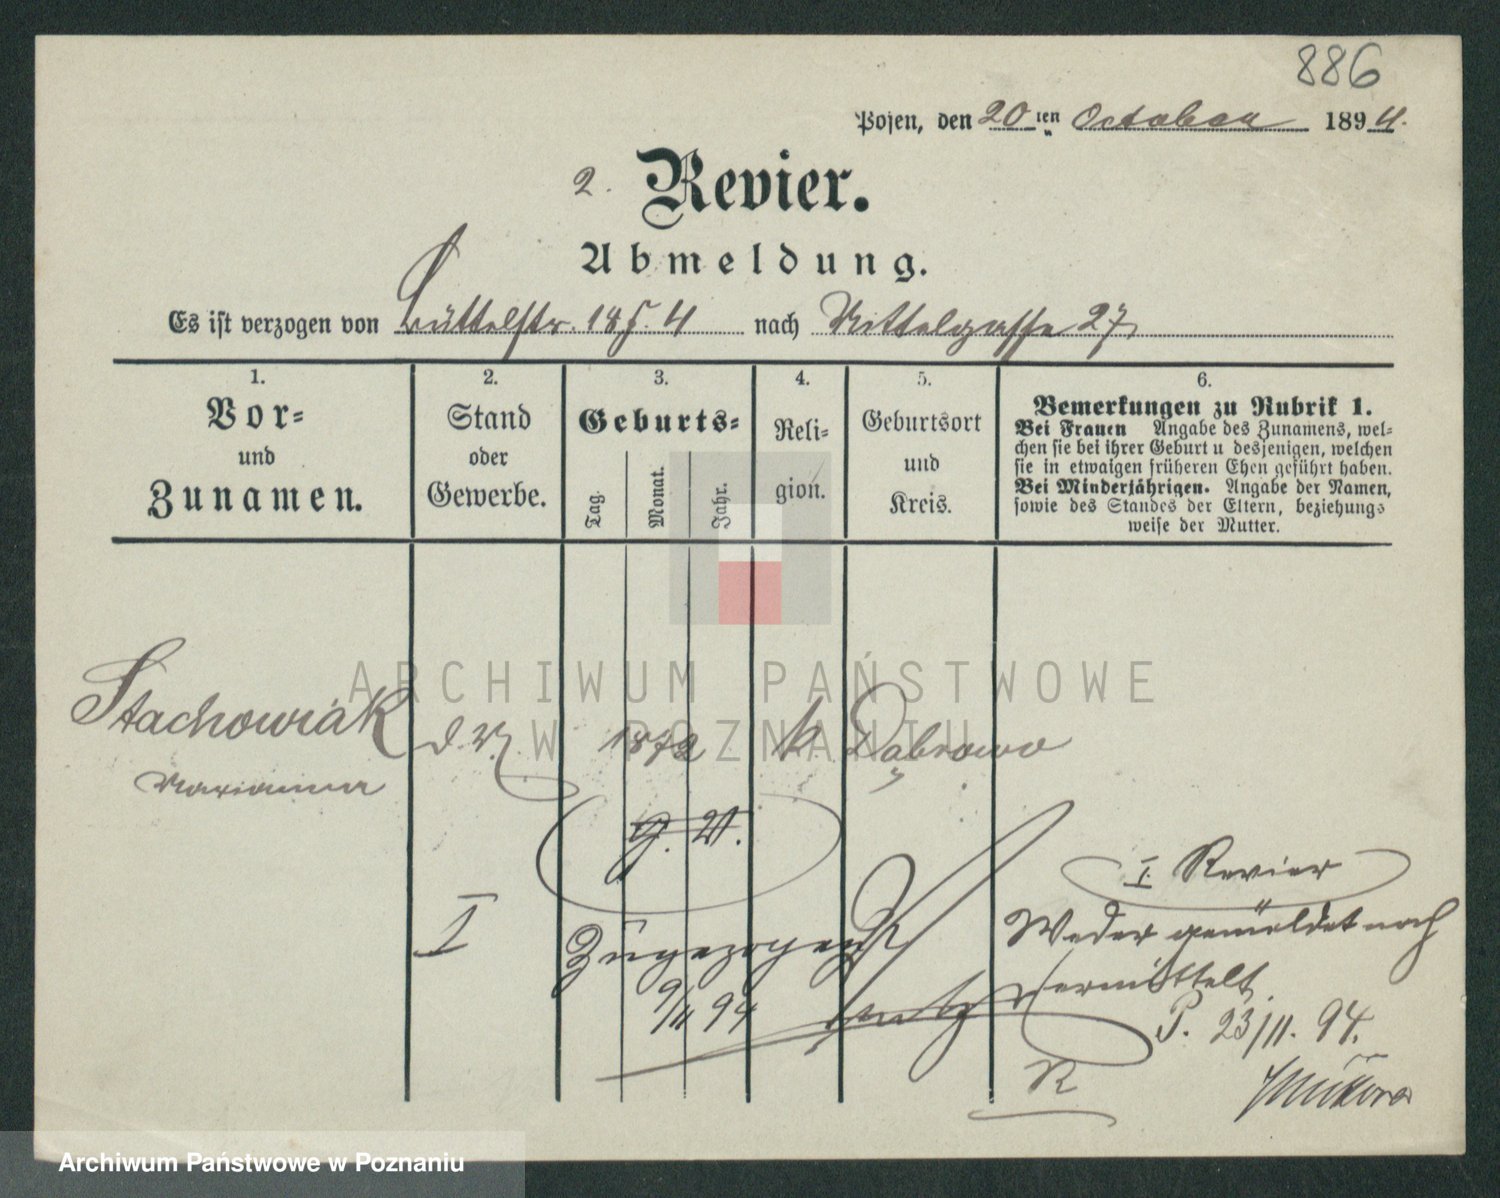 886
Posen, den 20ten October 1894.
2. Revier.
Abmeldung.
Es ist verzogen von Büttelstr. 18 4 nach Mittelgasse 27
1.
Vor-
und
Zunamen.
2.
Stand
oder
Gewerbe.
3.
Geburts-
Tag.
Monat.
Jahr.
4.
Reli-
gion.
5.
Geburtsort
und
Kreis.
6.
Bemerkungen zu Rubrik 1.
Bei Frauen Angabe des Zunamens, wel-
chen sie bei ihrer Geburt u desjenigen, welchen
sie in etwaigen früheren Ehen geführt haben.
Bei Minderjährigen. Angabe der Namen,
sowie des Standes der Eltern, beziehungs-
weise der Mutter.
Stachowiak 1872 k Dąbrowo
Marianna
I
Zugezogen
9/11 94
I. Revier
Weder gemeldet noch
vermittelt.
P. 23/11. 94.
R
ARCHIWUM PAŃSTWOWE
W POZNANIU
Archiwum Państwowe w Poznaniu